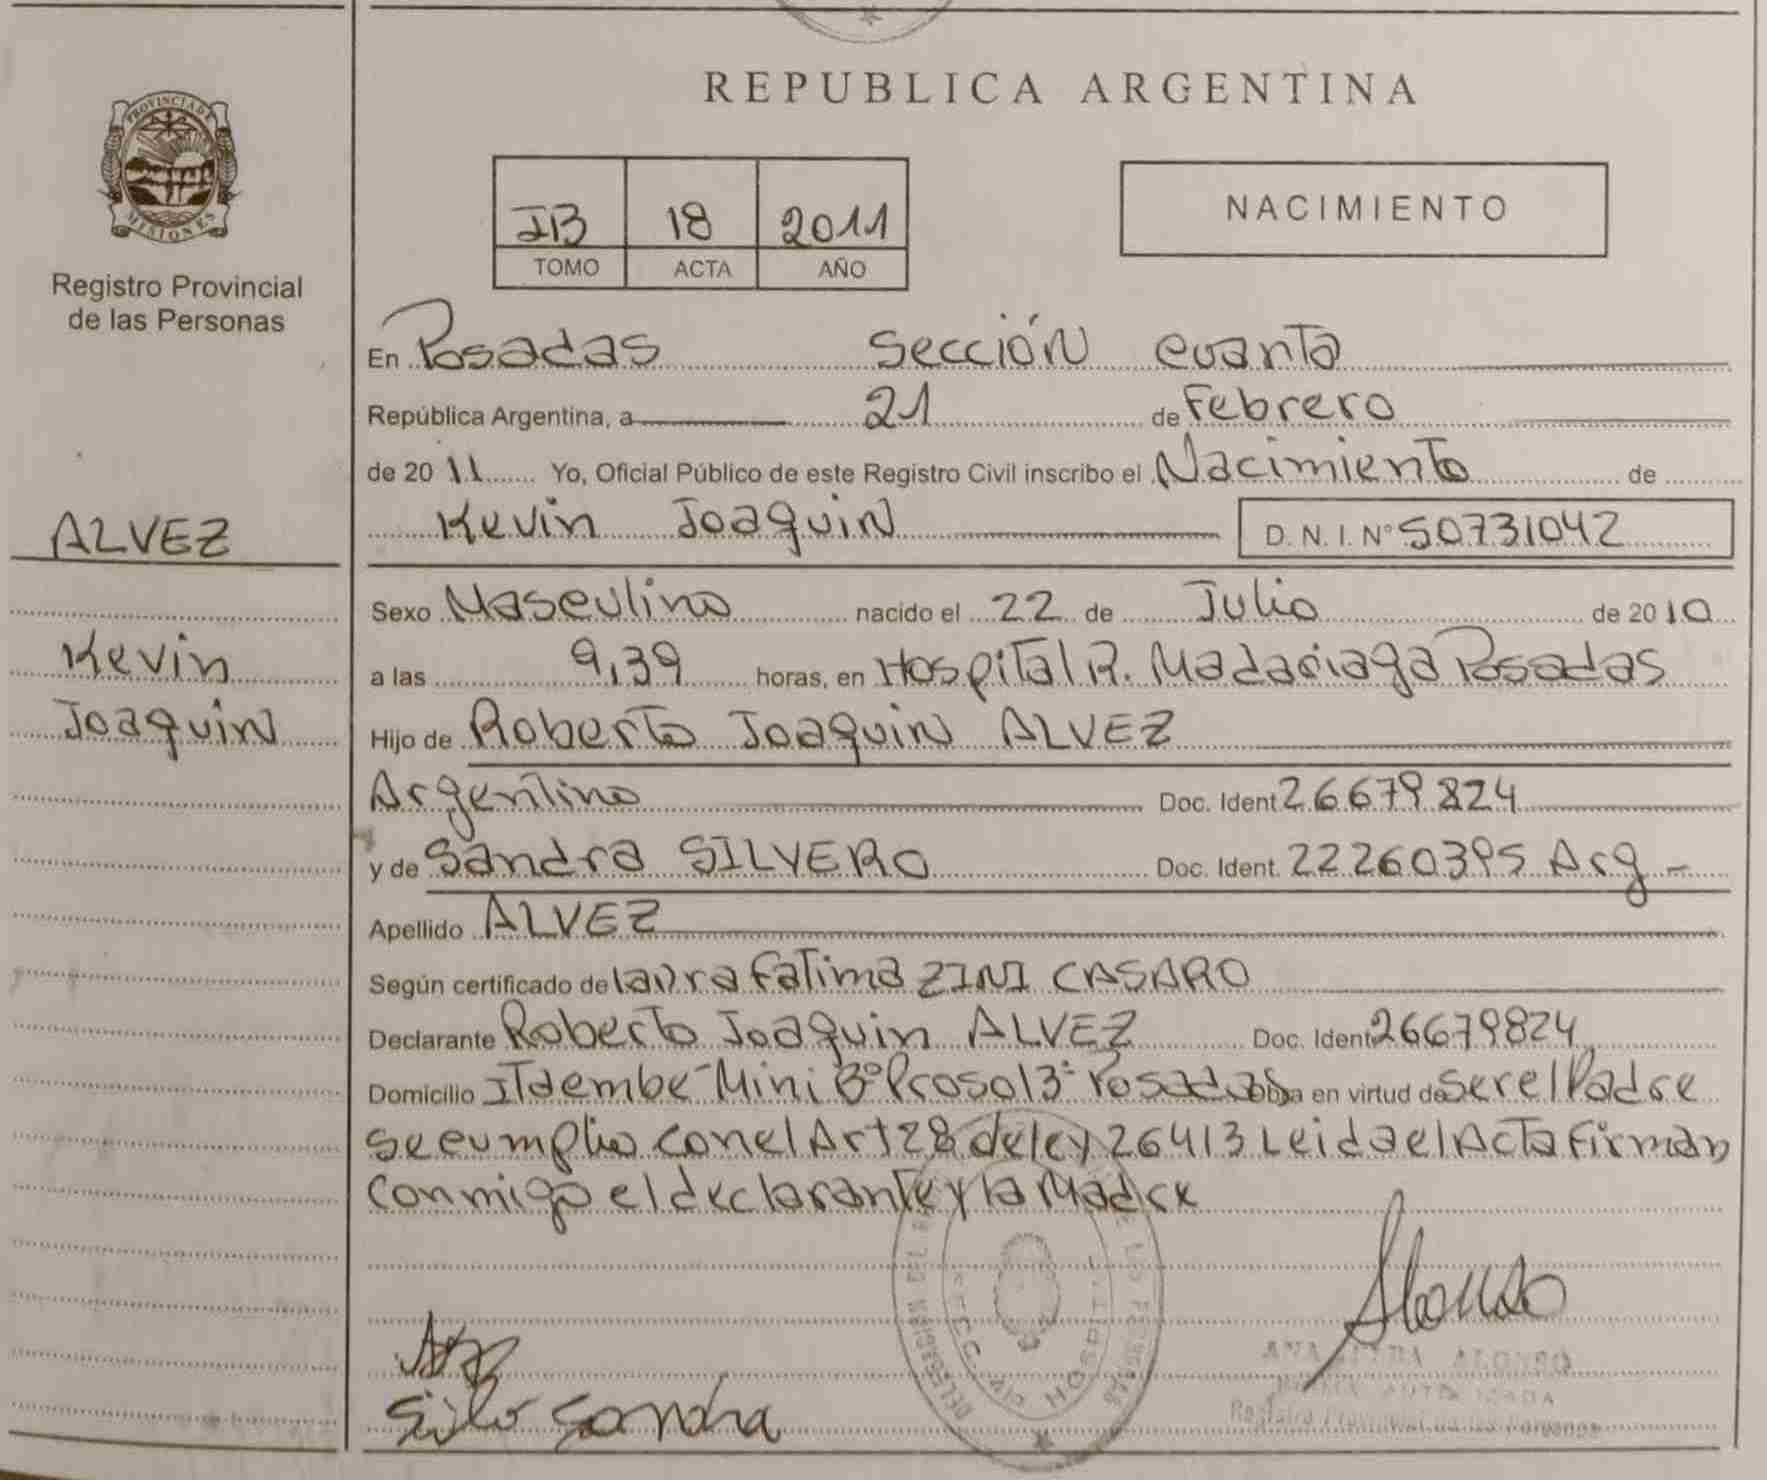 REPUBLICA ARGENTINA
PROVINCIA DE
MISIONES
Registro Provincial
de las Personas
JB 18 2011
TOMO ACTA AÑO
NACIMIENTO
En Posadas Sección cuarta
República Argentina, a 21 de Febrero
de 2011 Yo, Oficial Público de este Registro Civil inscribo el Nacimiento de
Kevin Joaquin D. N. I. N° 50731042
ALVEZ
Kevin
Joaquin
Sexo Masculino nacido el 22 de Julio de 2010
a las 9,39 horas, en Hospital R. Madariaga Posadas
Hijo de Roberto Joaquin ALVEZ
Argentino Doc. Ident 26679824
y de Sandra SILVERO Doc. Ident. 22260395 Arg -
Apellido ALVEZ
Según certificado de laura Fatima ZINI CASARO
Declarante Roberto Joaquin ALVEZ Doc. Ident 26679824
Domicilio Itaembe Mini B° Prosol 3° Posadas Obra en virtud de ser el Padre
se cumplio con el Art 28 de ley 26413 Leida el Acta Firman
conmigo el declarante y la Madre
Alonso
Silvo Sandra
ALONSO
Registro Provincial de las Personas
SECC. 4ta HOSPITAL